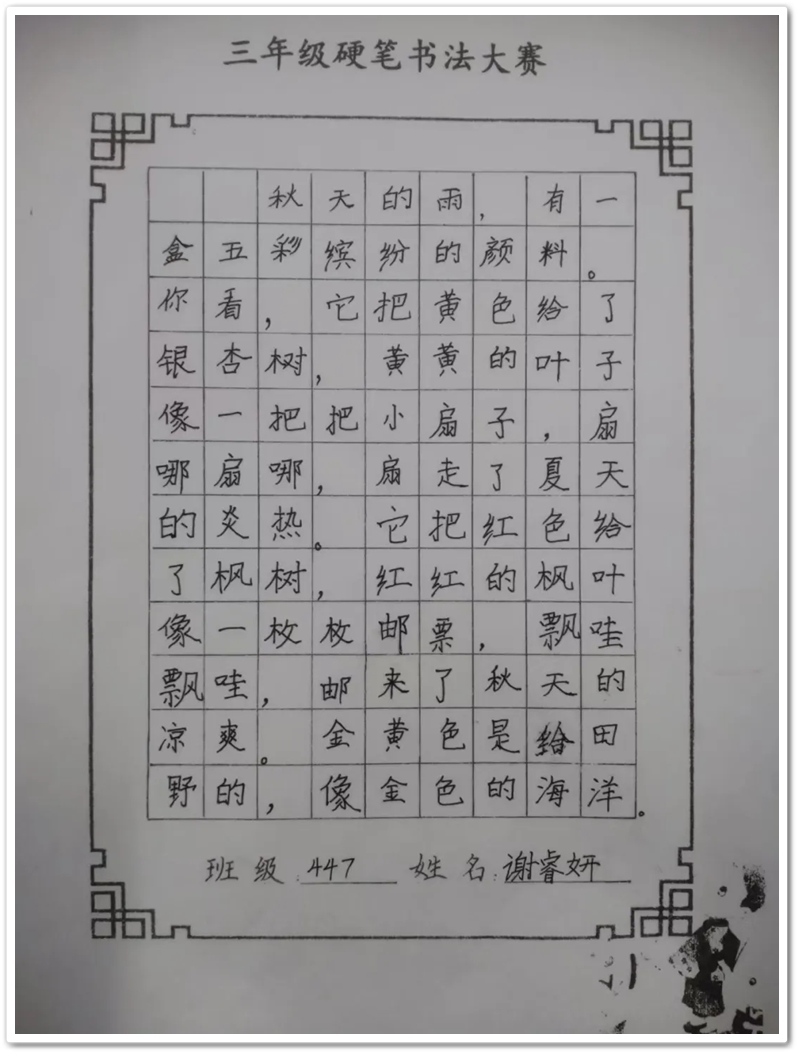 三年级硬笔书法大赛
秋天的雨，有一
盒五彩缤纷的颜料。
你看，它把黄色给了
银杏树，黄黄的叶子
像一把把小扇子，扇
哪扇哪，扇走了夏天
的炎热。它把红色给
了枫树，红红的枫叶
像一枚枚邮票，飘哇
飘哇，邮来了秋天的
凉爽。金黄色是给田
野的，像金色的海洋。
班级:447 姓名:谢睿妍